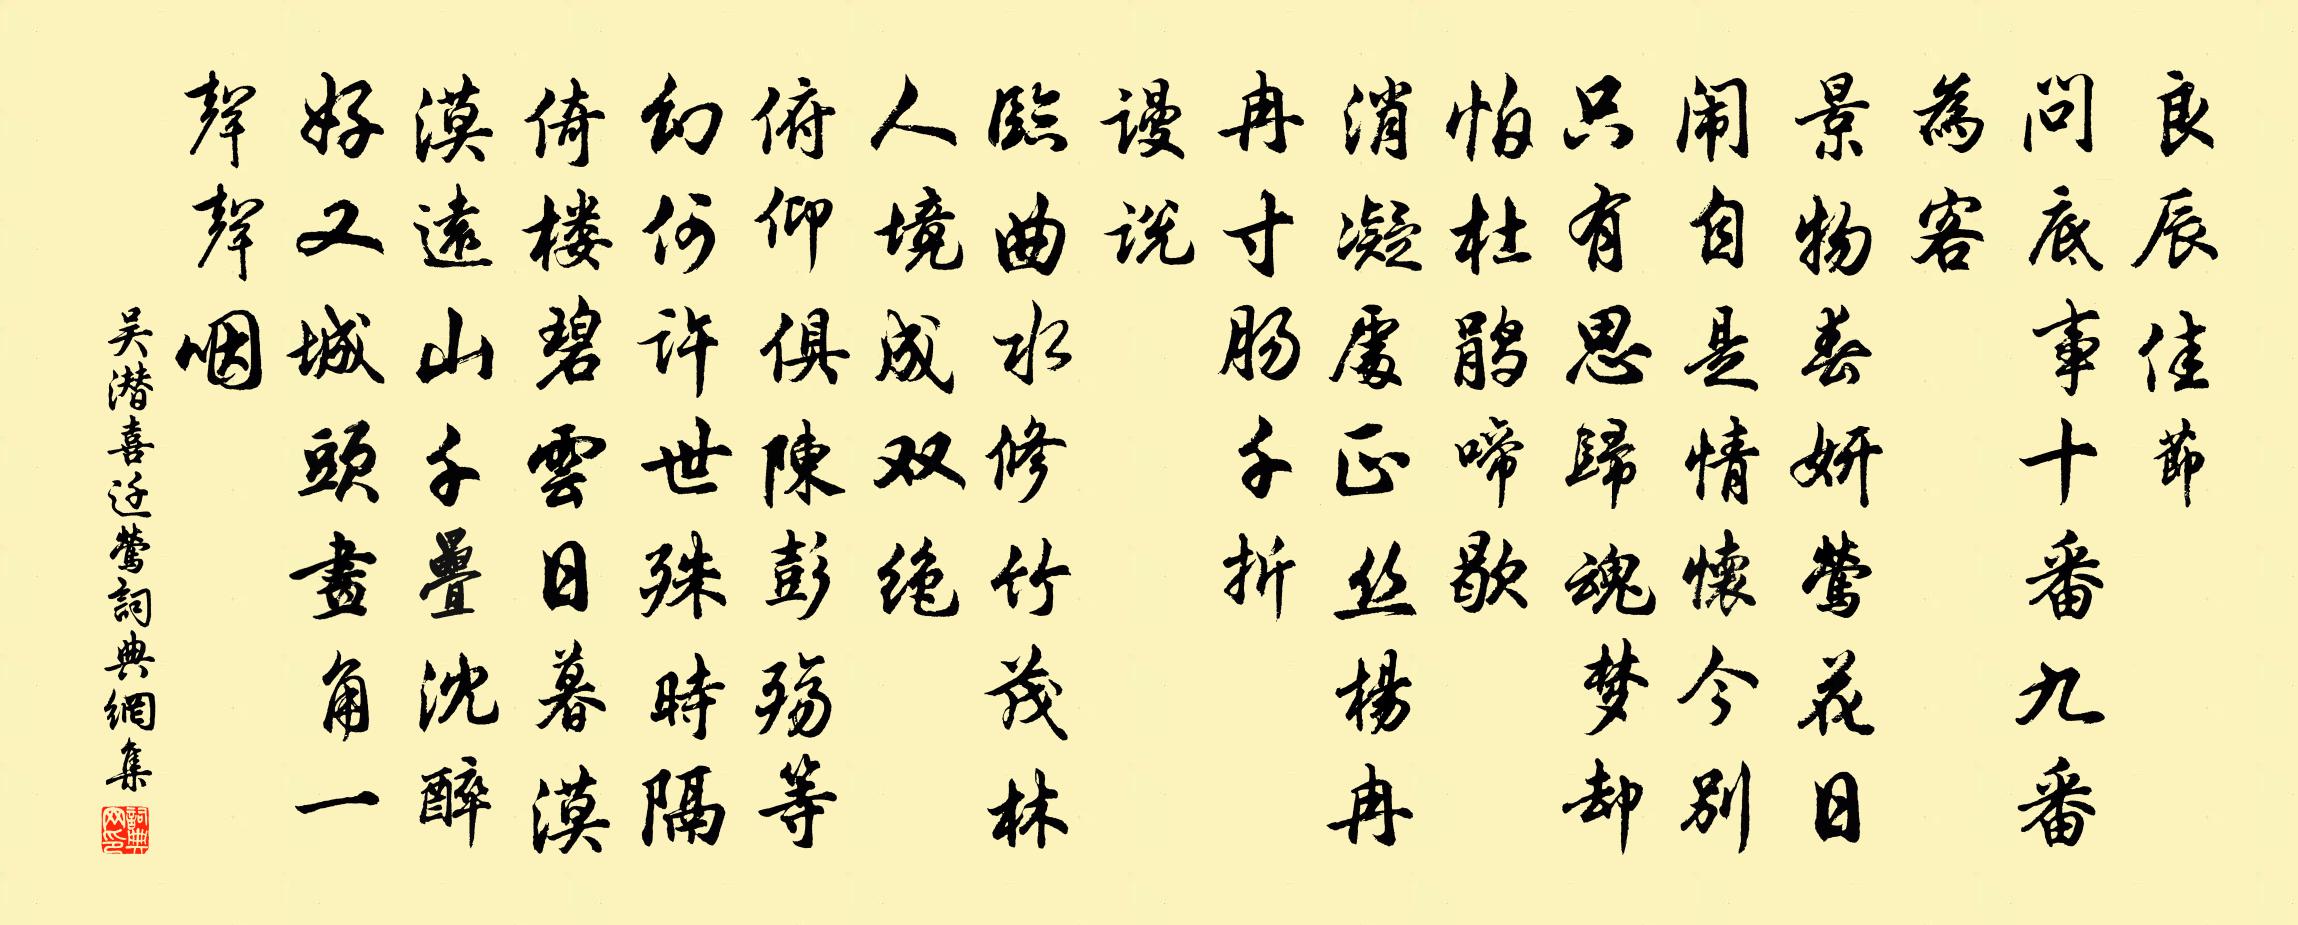 良辰佳節
問底事十番九番
為客
景物春妍鶯花日
闹自是情懷今别
只有思歸魂梦却
怕杜鹃啼歇
消凝處正丝楊冉
冉寸肠千折
谩说
臨曲水修竹茂林
人境成双绝
俯仰俱陳彭殇等
幻何許世殊時隔
倚楼碧雲日暮漠
漠遠山千疊沈醉
好又城頭畫角一
聲聲咽
吴潜喜迁鶯詞典網集
詞典網印